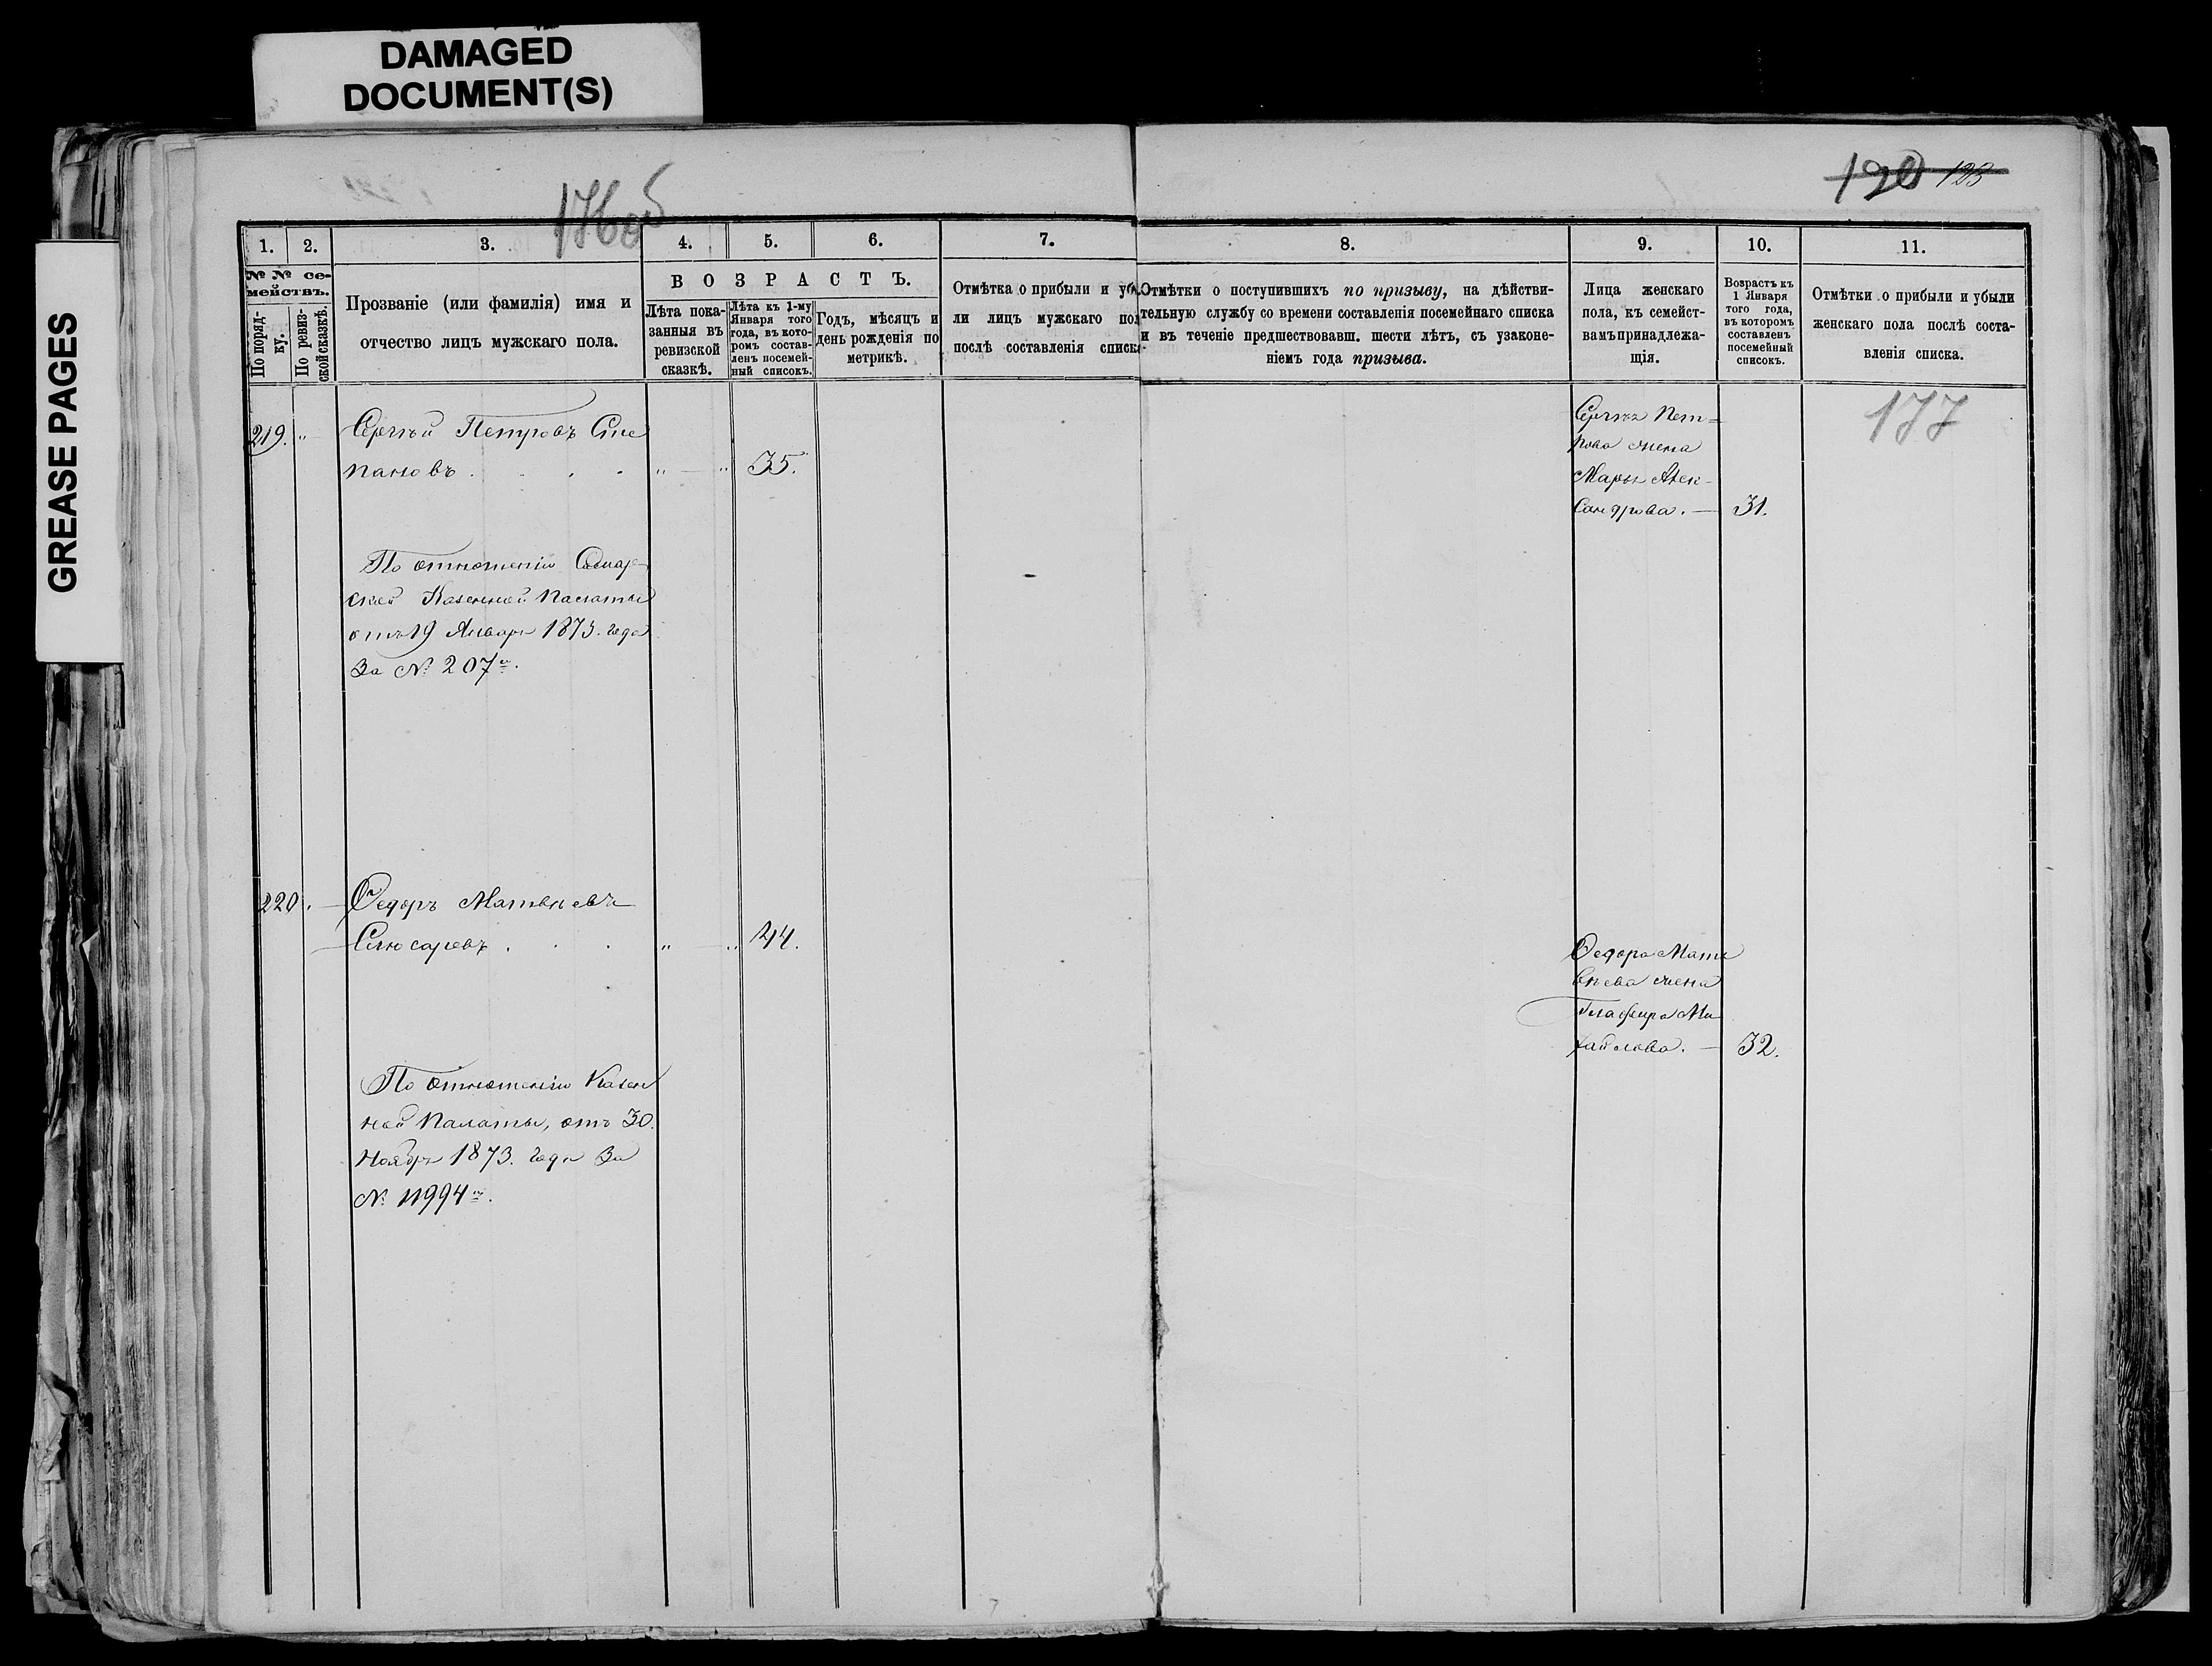 DAMAGED
DOCUMENT(S)
GREASE PAGES
176об
120 123
1.
2.
3.
4.
5.
6.
7.
8.
9.
10.
11.
№ № се-
мействъ.
По поряд-
ку.
По ревиз-
ской сказкѣ.
Прозваніе (или фамилія) имя и
отчество лицъ мужскаго пола.
ВОЗРАСТЪ.
Лѣта пока-
занныя въ
ревизской
сказкѣ.
Лѣта къ 1-му
Января того
года, въ кото-
ромъ состав-
ленъ посемей-
ный списокъ.
Годъ, мѣсяцъ и
день рожденія по
метрикѣ.
Отмѣтка о прибыли и убы
ли лицъ мужскаго пол
послѣ составленія списк
Отмѣтки о поступившихъ по призыву, на дѣйстви-
тельную службу со времени составленія посемейнаго списка
и въ теченіе предшествовавш. шести лѣтъ, съ узаконе-
ніемъ года призыва.
Лица женскаго
пола, къ семейст-
вамъ принадлежа-
щія.
Возрастъ къ
1 Января
того года,
въ которомъ
составленъ
посемейный
списокъ.
Отмѣтки о прибыли и убыли
женскаго пола послѣ соста-
вленія списка.
177
219. "
Сергѣй Петровъ Сте
пановъ . . . . " — " 35.
Сергѣя Пет=
рова жена
Марья Алек-
сандрова. — 31.
По отношенію Самар-
ской Казенной Палаты
отъ 19 Января 1873. года
За № 207м.
220.
Ѳедоръ Матвѣевъ
Слюсаревъ . . . " — " 44.
Ѳедора Мат
вѣева жена
Глафира Ми
хайлова. — 32.
По отношенію Казен
ной Палаты, отъ 30.
Ноября 1873. года За
№ 11994м.